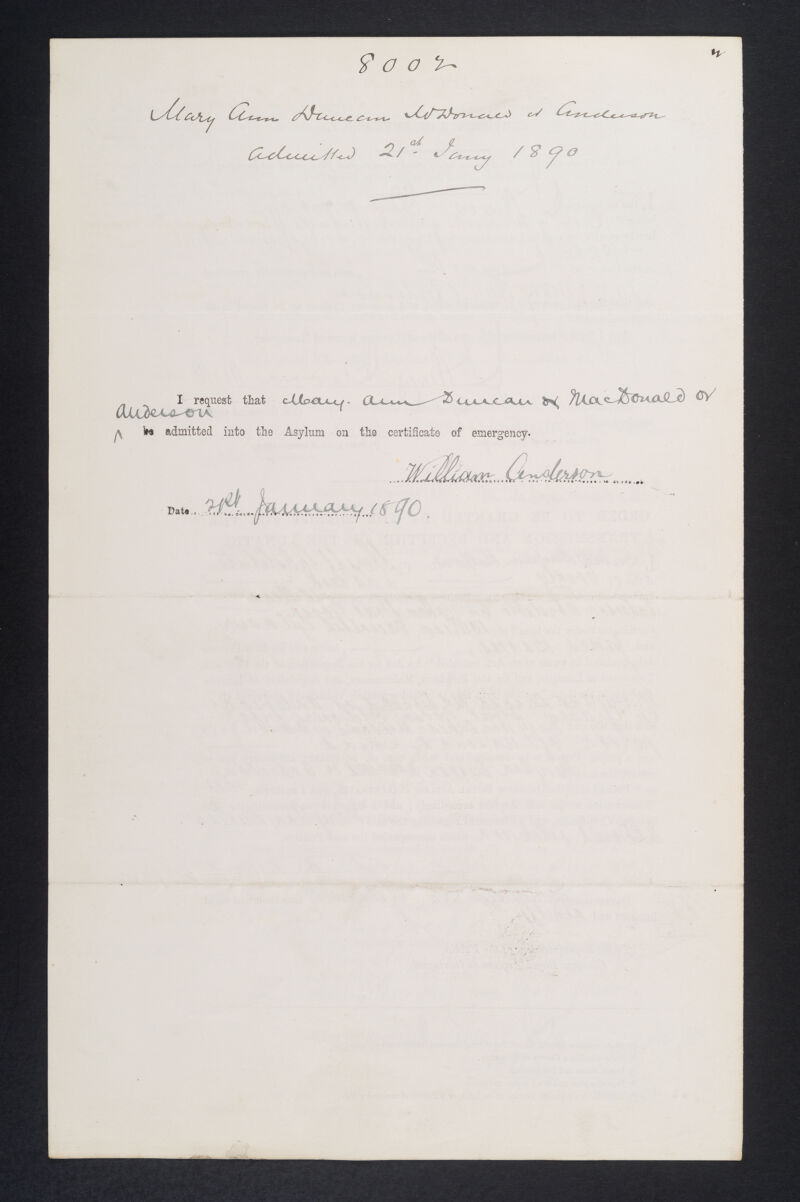 8002
Mary Ann Duncan McDonald or Anderson
Admitted 21st Jany 1890
I request that Mary Ann Duncan or MacDonald or
Anderson
^ be admitted into the Asylum on the certificate of emergency.
William Anderson
Date 21st January 1890.